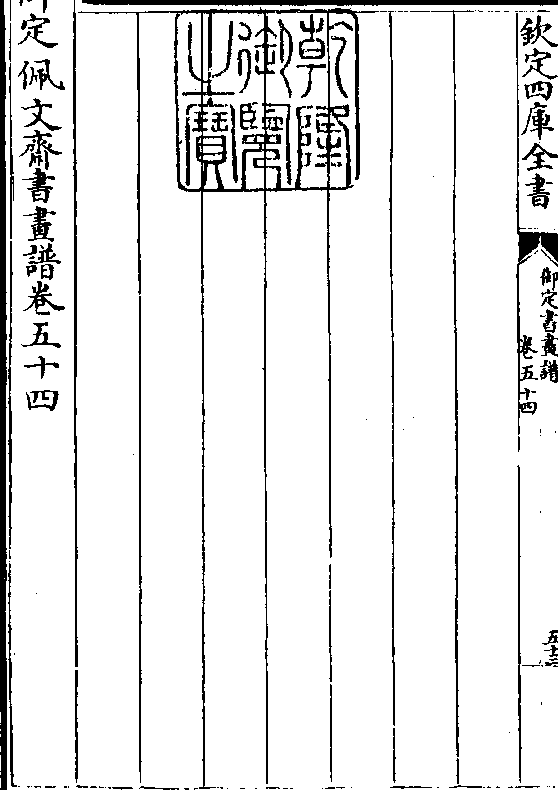 欽定四庫全書
御定書畫譜
卷五十四
五十三
乾隆
御覽
之寶
御定佩文齋書畫譜卷五十四